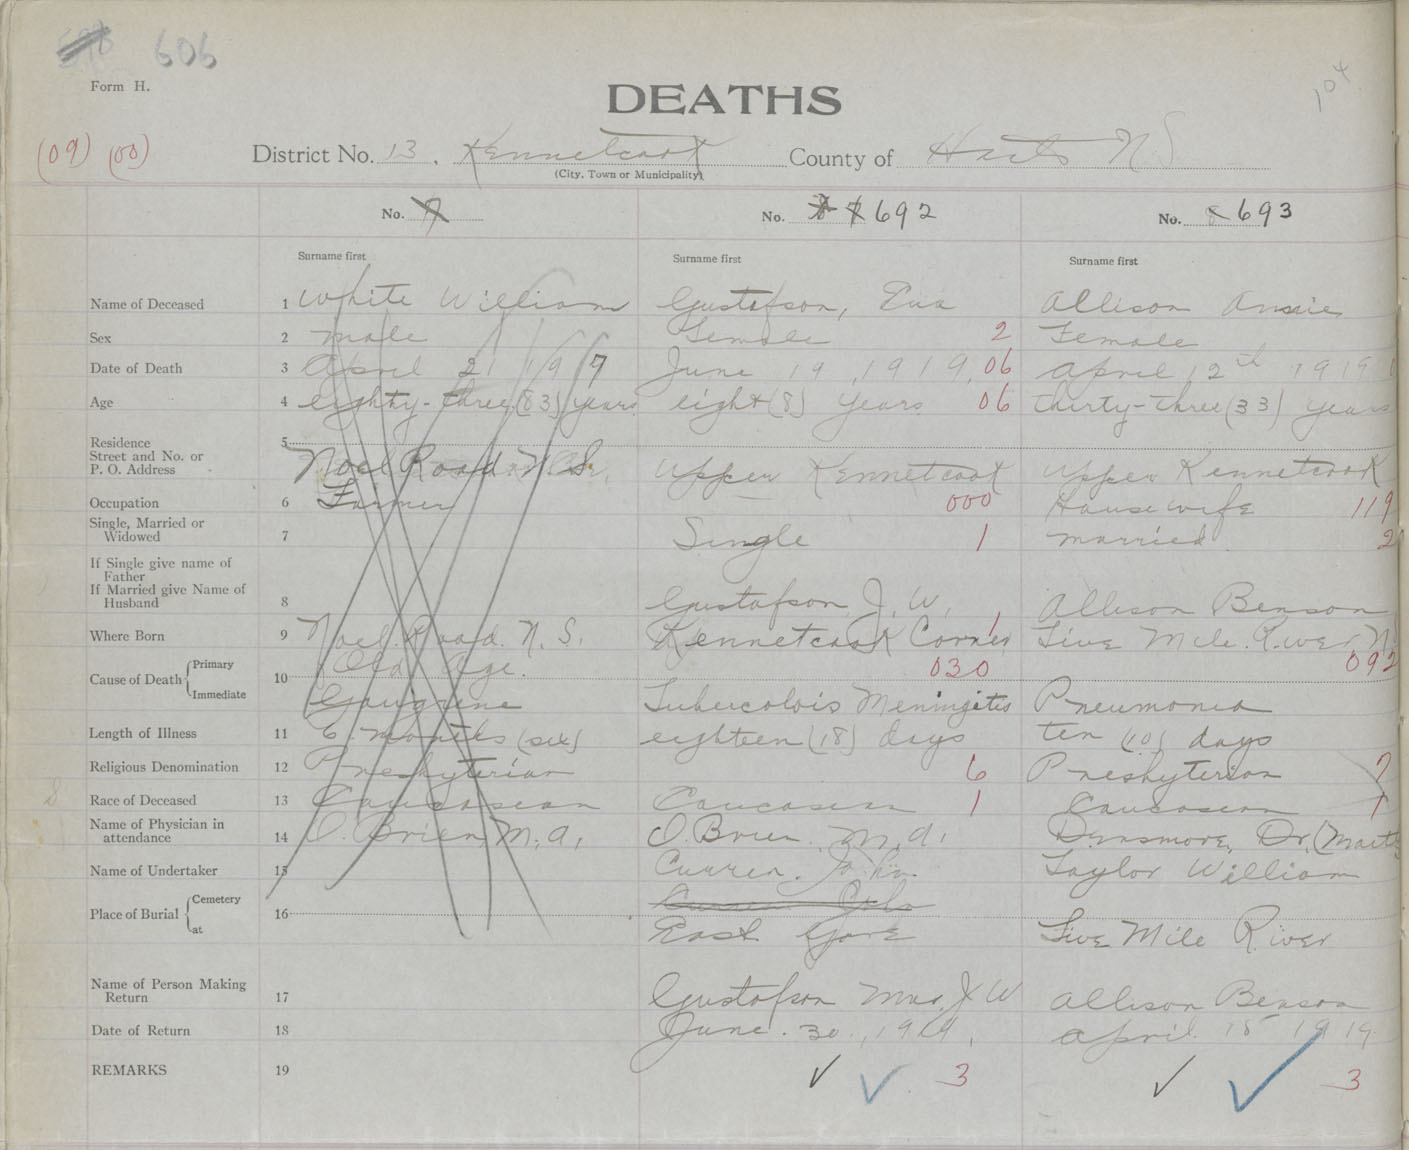 606
Form H.
104
DEATHS
(09) (00)
District No. 13. Kennetcook County of Hants N.S.
(City, Town or Municipality)
No. 7 No. 8 7 692 No. 8 693
Surname first Surname first Surname first
Name of Deceased 1 White William Gustafson, Eva Allison Annie
Sex 2 male Female 2 Female
Date of Death 3 April 21 1919 June 19, 1919, 06 April 12th 1919
Age 4 eighty-three (83) years eight (8) years 06 thirty-three (33) years
Residence 5
Street and No. or
P. O. Address Noel Road. N.S. Upper Kennetcook Upper Kennetcook
Occupation 6 Farmer 000 Housewife 119
Single, Married or
Widowed 7 Single 1 married 2
If Single give name of
Father
If Married give Name of
Husband 8 Gustafson J. W. Allison Benson
Where Born 9 Noel Road. N. S. Kennetcook Corner 1 Five Mile River N.
Cause of Death Primary 10 Old Age. 030 092
Immediate Gangrene Tubercolois Meningetis Pneumonia
Length of Illness 11 6 months (six) eighteen (18) days ten (10) days
Religious Denomination 12 Presbyterian 6 Presbyterian 7
Race of Deceased 13 Caucasean Caucasean 1 Caucasean 1
Name of Physician in
attendance 14 O. Brien M. a, O. Brien M. a, Densmore, Dr,
Name of Undertaker 15 Curren. John. Taylor William
Place of Burial Cemetery 16
at East Gore Five Mile River
Name of Person Making
Return 17 Gustafson Mrs. J W Allison Benson
Date of Return 18 June. 30, 1919, April 15 1919
REMARKS 19 ✓ ✓ 3 ✓ ✓ 3